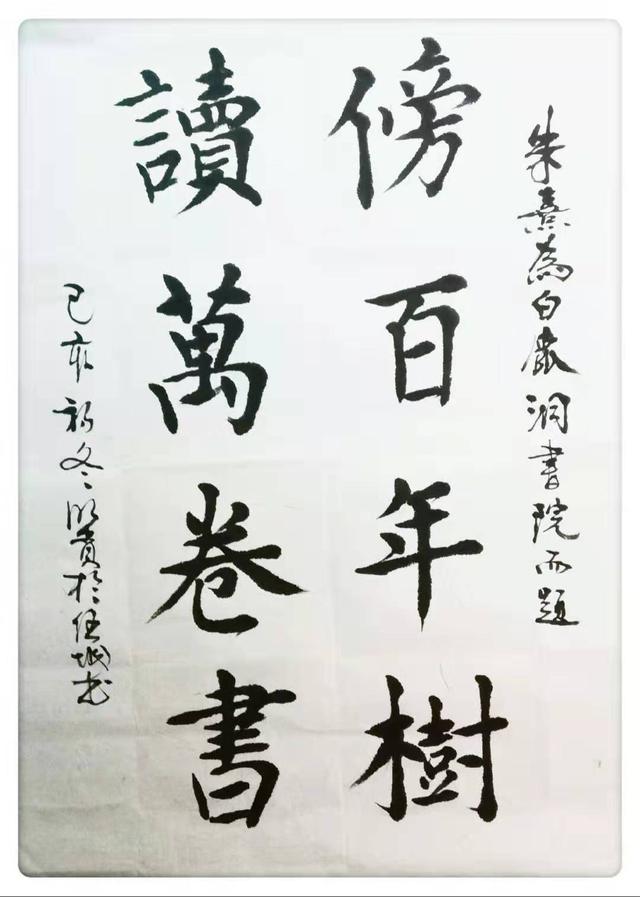 朱熹為白鹿洞書院而題
傍百年樹
讀萬卷書
己亥初冬賢於任城書